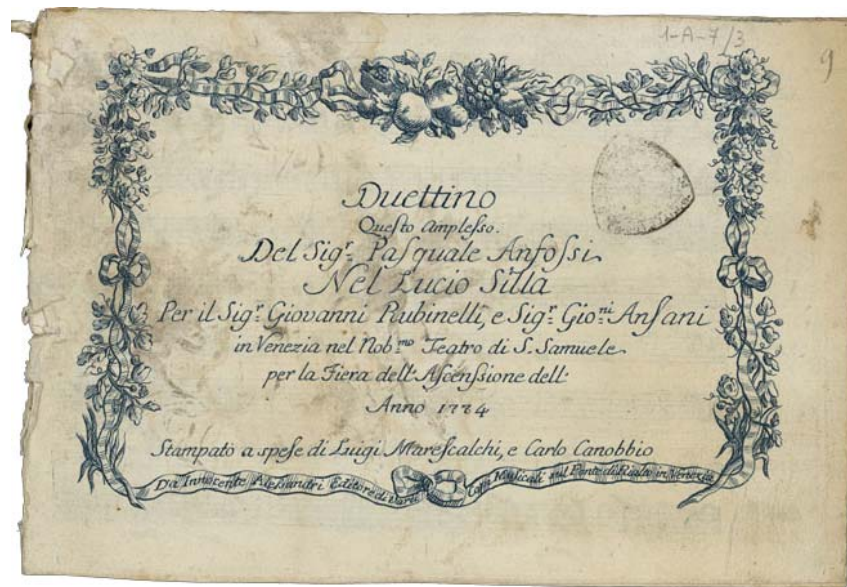 1-A-7/3
9
Duettino
Questo Amplesso.
Del Sigr. Pasquale Anfossi
Nel Lucio Silla
Per il Sigr. Giovanni Rubinelli, e Sigr. Gio:ni Ansani
in Venezia nel Nob:mo Teatro di S. Samuele
per la Fiera dell'Ascensione dell'
Anno 1774
Stampato a spese di Luigi Marescalchi, e Carlo Canobbio
Da Innocente Alessandri Editore di varie Cose Musicali sul Ponte di Rialto in Venezia